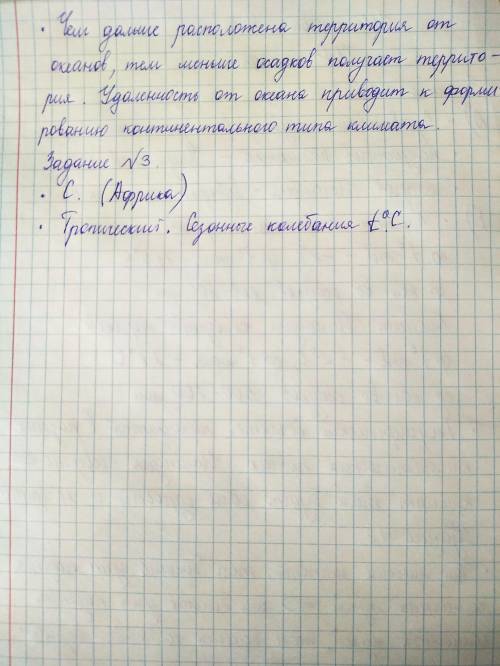 • Чем дальше расположена территория от
океанов, тем меньше осадков получает террито-
рия. Удаленность от океана приводит к форми
рованию континентального типа климата.
Задание №3.
• С. (Африка)
• Тропический. Сезонные колебания t°C.